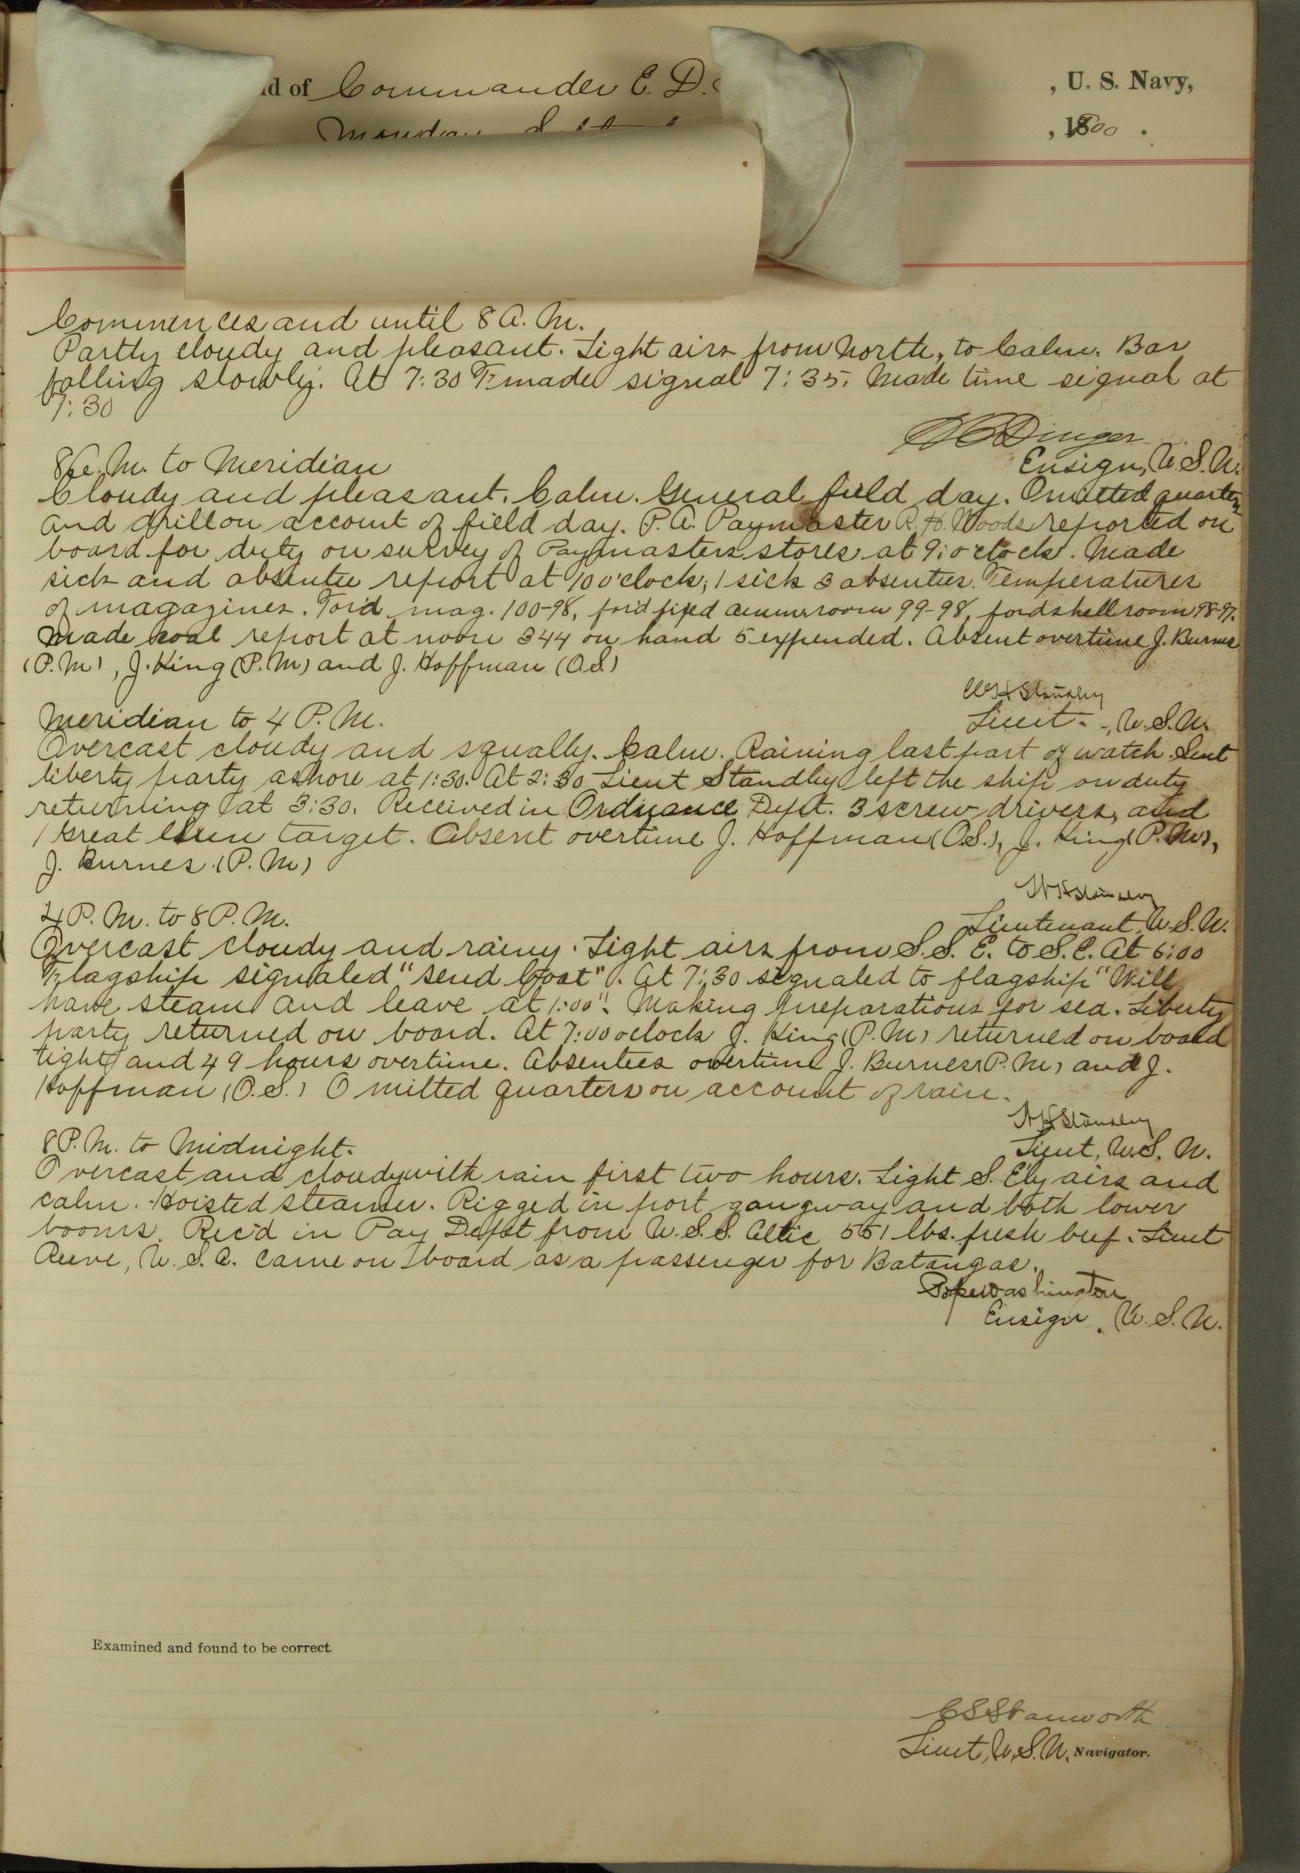 d of Commander E. D.
, U. S. Navy,
Monday
, 1800 .
Commences and until 8 A. M.
Partly cloudy and pleasant. Light airs from North, to Calm. Bar
falling slowly. At 7:30 F made signal 7:35. Made time signal at
7:30
Ensign, U. S. N.
8 A. M. to Meridian
Cloudy and pleasant. Calm. General field day. Omitted quarters
and drill on account of field day. P. A. Paymaster R. H. Woods reported on
board for duty on survey of Paymasters stores at 9: o'clock. Made
sick and absentee report at 10 o'clock; 1 sick 3 absentees. Temperatures
of magazines. For'd mag. 100-98, for'd fixed ammu room 99-98, for'd shell room 98-97.
Made coal report at noon 344 on hand 5 expended. Absent overtime J. Burnes
(P.M), J. King (P.M) and J. Hoffman (O.S)
W H Standley
Lieut. , U. S. N.
Meridian to 4 P. M.
Overcast cloudy and squally. Calm. Raining last part of watch. Sent
liberty party ashore at 1:30. At 2:30 Lieut Standley left the ship on duty
returning at 3:30. Received in Ordnance Dept. 3 screw drivers, and
1 Great Gun target. Absent overtime J. Hoffman (O.S.), J. King (P.M),
J. Burnes. (P.M)
W H Standley
Lieutenant, U. S. N.
4 P. M. to 8 P. M.
Overcast cloudy and rainy. Light airs from S. S. E. to S. E. At 6:00
Flagship signaled "send boat". At 7:30 signaled to flagship "Will
have steam and leave at 1:00". Making preparations for sea. Liberty
party returned on board. At 7:00 oclock J. King (P.M) returned on board
tight and 49 hours overtime. Absentees overtime J. Burnes (P.M) and J.
Hoffman (O.S.) Omitted quarters on account of rain.
W H Standley
Lieut, U. S. N.
8 P. M. to Midnight.
Overcast and cloudy with rain first two hours. Light S. Ely airs and
calm. Hoisted steamer. Rigged in port gangway and both lower
booms. Rec'd in Pay Dept from U. S. S. Celtic 551 lbs. fresh beef. Lieut
Reeve, U. S. A. came on board as a passenger for Batangas.
Pope Washington
Ensign, U. S. N.
Examined and found to be correct.
C S Stanworth
Lieut, U. S. N, Navigator.